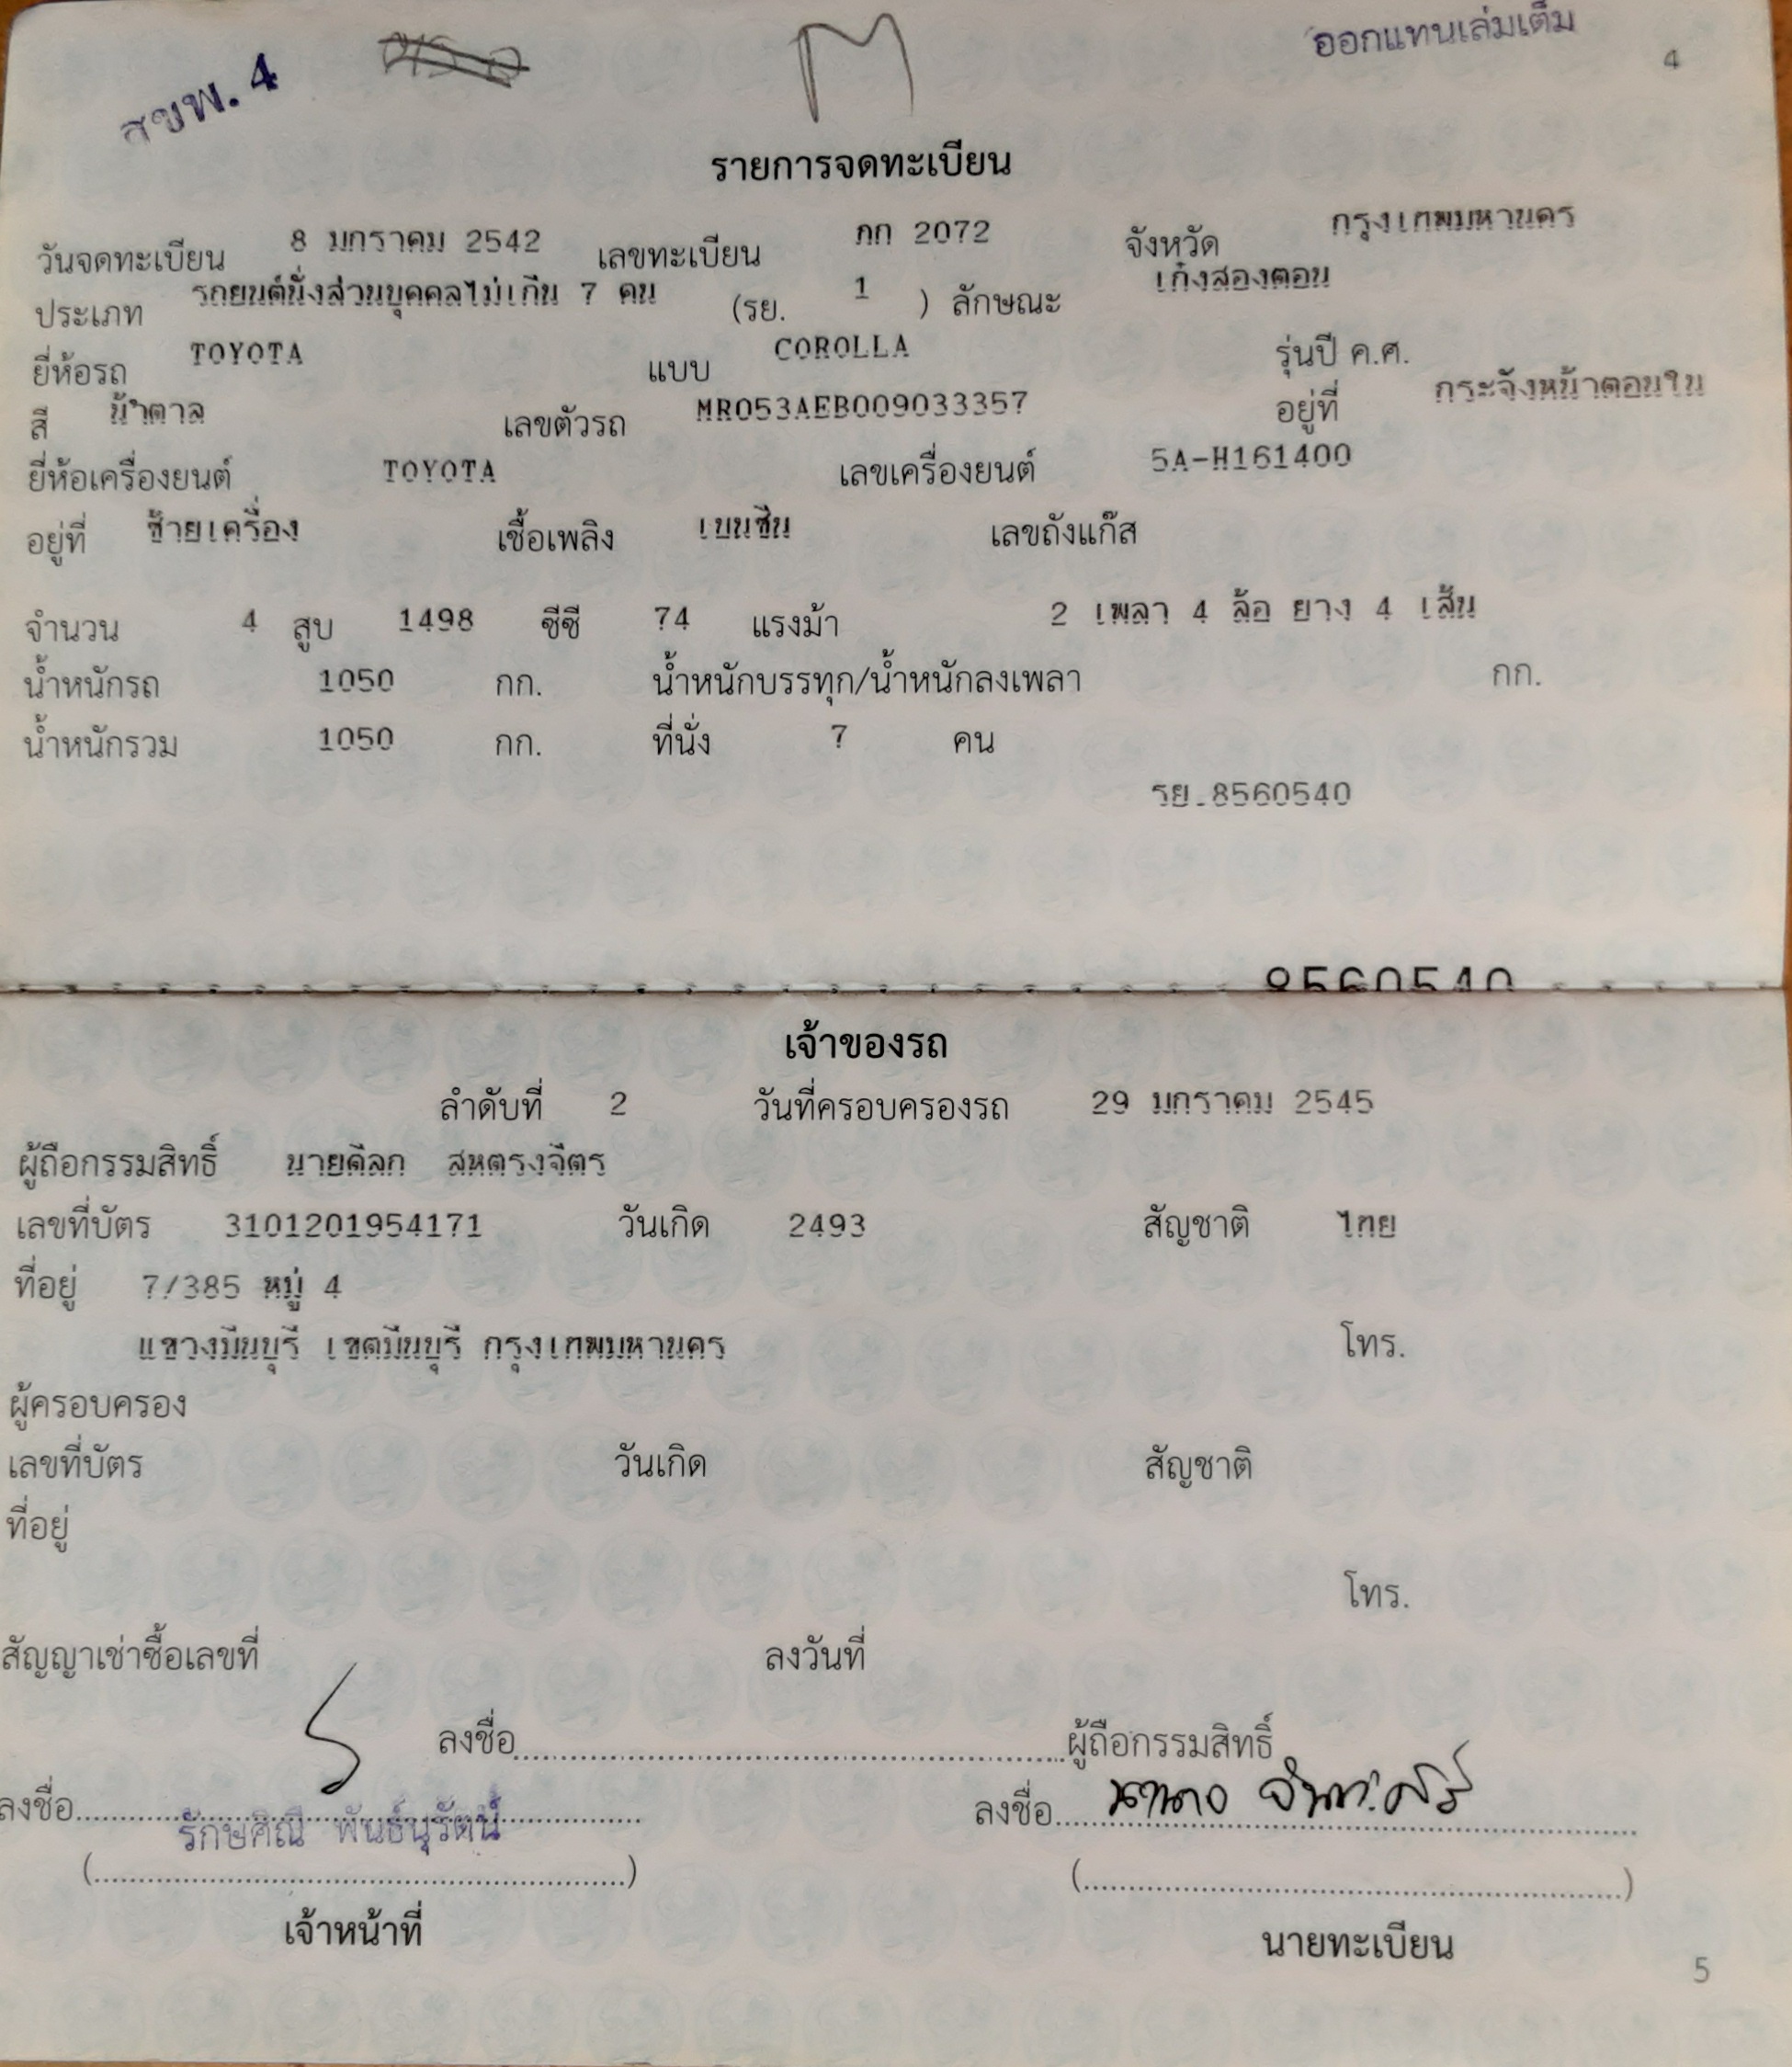 สขพ. 4
ออกแทนเล่มเต็ม
4
รายการจดทะเบียน
วันจดทะเบียน 8 มกราคม 2542 เลขทะเบียน ภก 2072 จังหวัด กรุงเทพมหานคร
ประเภท รถยนต์นั่งส่วนบุคคลไม่เกิน 7 คน (รย. 1 ) ลักษณะ เก๋งสองตอน
ยี่ห้อรถ TOYOTA แบบ COROLLA รุ่นปี ค.ศ.
สี น้ำตาล เลขตัวรถ MR053AEB009033357 อยู่ที่ กระจังหน้าตอนใน
ยี่ห้อเครื่องยนต์ TOYOTA เลขเครื่องยนต์ 5A-H161400
อยู่ที่ ซ้ายเครื่อง เชื้อเพลิง เบนซิน เลขถังแก๊ส
จำนวน 4 สูบ 1498 ซีซี 74 แรงม้า 2 เพลา 4 ล้อ ยาง 4 เส้น
น้ำหนักรถ 1050 กก. น้ำหนักบรรทุก/น้ำหนักลงเพลา กก.
น้ำหนักรวม 1050 กก. ที่นั่ง 7 คน
รย.8560540
8560540
เจ้าของรถ
ลำดับที่ 2 วันที่ครอบครองรถ 29 มกราคม 2545
ผู้ถือกรรมสิทธิ์ นายดิลก สหตรงจิตร
เลขที่บัตร 3101201954171 วันเกิด 2493 สัญชาติ ไทย
ที่อยู่ 7/385 หมู่ 4
แขวงมีนบุรี เขตมีนบุรี กรุงเทพมหานคร โทร.
ผู้ครอบครอง
เลขที่บัตร วันเกิด สัญชาติ
ที่อยู่
โทร.
สัญญาเช่าซื้อเลขที่ ลงวันที่
ลงชื่อ ผู้ถือกรรมสิทธิ์
ลงชื่อ ลงชื่อ
รักษศิณี พันธ์นุรัตน์
(....) (....)
เจ้าหน้าที่ นายทะเบียน
5